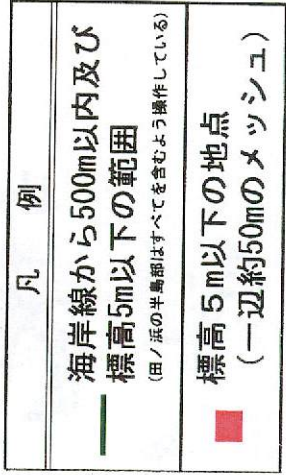 凡　例
海岸線から500m以内及び
標高5m以下の範囲
(田ノ浜の半島部はすべてを含むよう操作している)
標高５ｍ以下の地点
(一辺約50mのメッシュ)